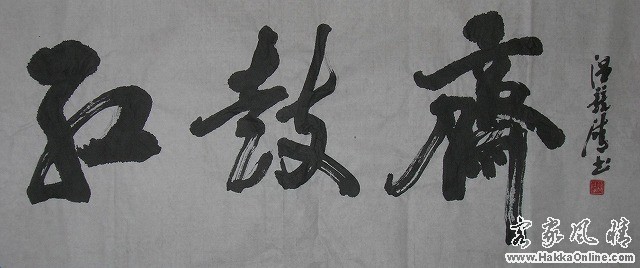 红鼓齋
客家風情
www.HakkaOnline.com